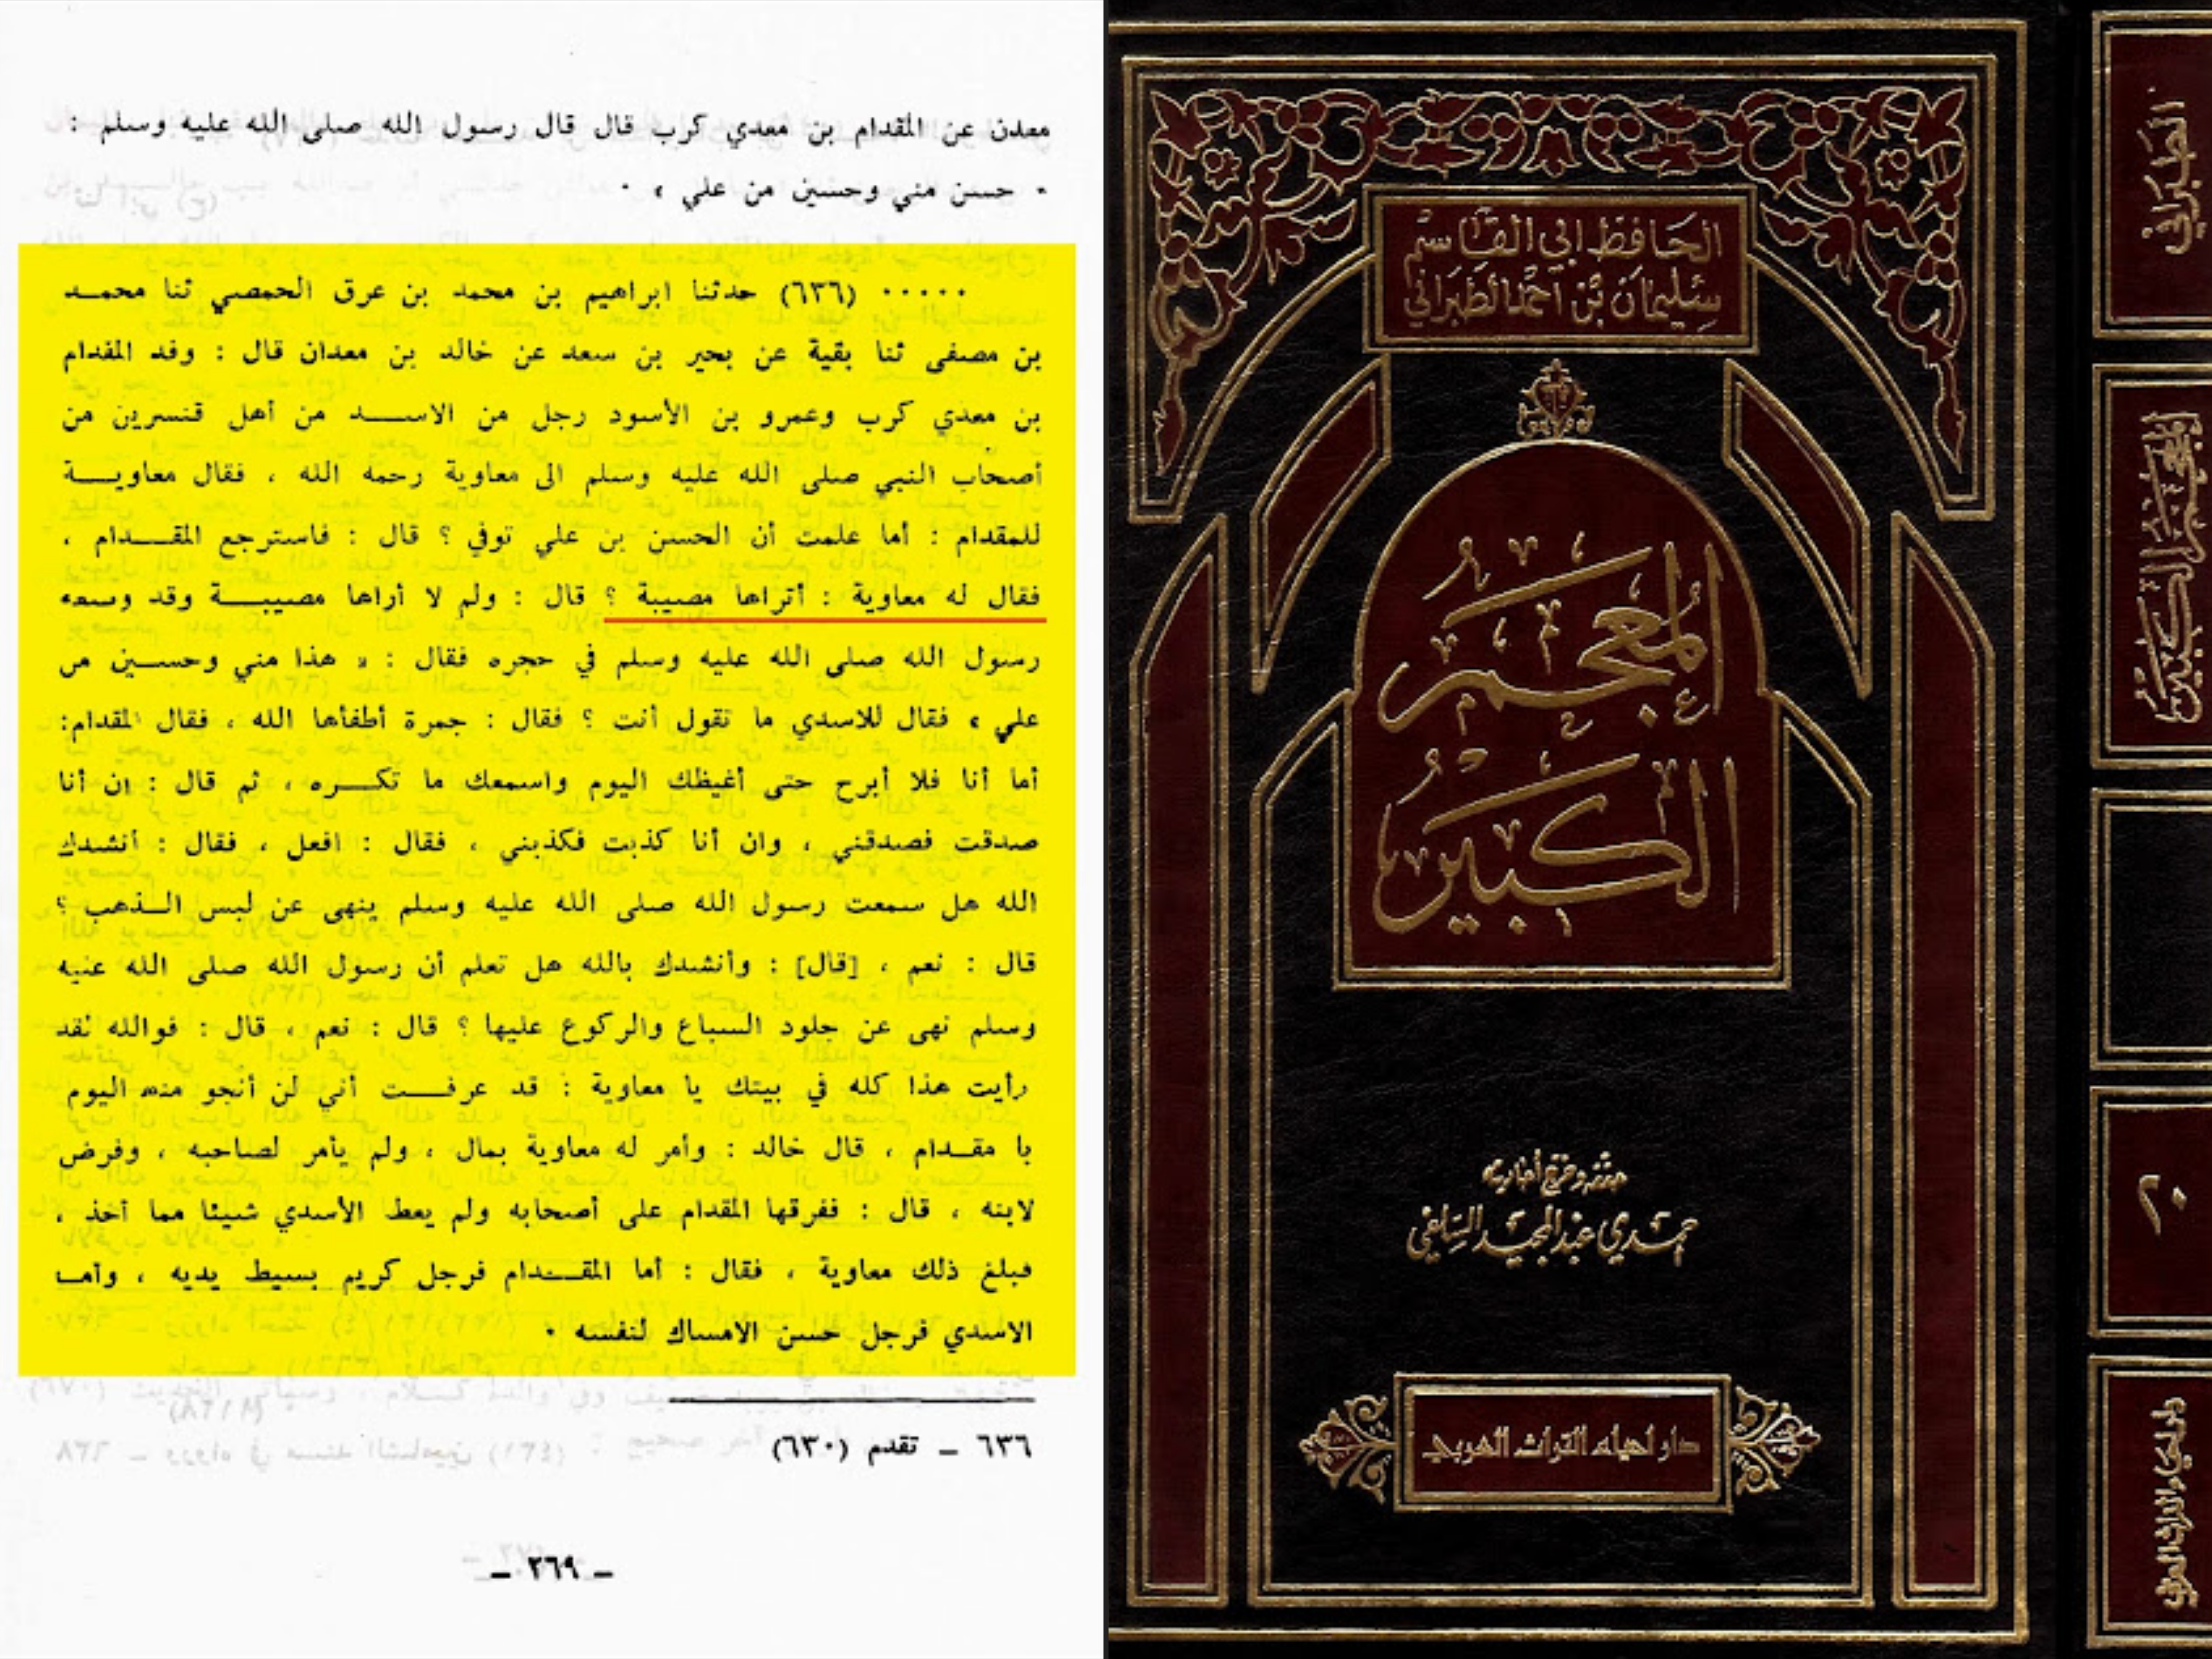 معدن عن المقدام بن معدي كرب قال قال رسول الله صلى الله عليه وسلم :
« حسن مني وحسين من علي » .
..... (٦٣٦) حدثنا ابراهيم بن محمد بن عرق الحمصي ثنا محمد
بن مصفى ثنا بقية عن بحير بن سعد عن خالد بن معدان قال : وفد المقدام
بن معدي كرب وعمرو بن الأسود رجل من الاسد من أهل قنسرين من
أصحاب النبي صلى الله عليه وسلم الى معاوية رحمه الله ، فقال معاوية
للمقدام : أما علمت أن الحسن بن علي توفي ؟ قال : فاسترجع المقدام ،
فقال له معاوية : أتراها مصيبة ؟ قال : ولم لا أراها مصيبة وقد وضعه
رسول الله صلى الله عليه وسلم في حجره فقال : « هذا مني وحسين من
علي » فقال للاسدي ما تقول أنت ؟ فقال : جمرة أطفأها الله ، فقال المقدام:
أما أنا فلا أبرح حتى أغيظك اليوم واسمعك ما تكره ، ثم قال : ان أنا
صدقت فصدقني ، وان أنا كذبت فكذبني ، فقال : افعل ، فقال : أنشدك
الله هل سمعت رسول الله صلى الله عليه وسلم ينهى عن لبس الذهب ؟
قال : نعم ، [قال] : وأنشدك بالله هل تعلم أن رسول الله صلى الله عليه
وسلم نهى عن جلود السباع والركوع عليها ؟ قال : نعم ، قال : فوالله لقد
رأيت هذا كله في بيتك يا معاوية : قد عرفت أني لن أنجو منه اليوم
يا مقدام ، قال خالد : وأمر له معاوية بمال ، ولم يأمر لصاحبه ، وفرض
لابنه ، قال : ففرقها المقدام على أصحابه ولم يعط الأسدي شيئا مما أخذ ،
فبلغ ذلك معاوية ، فقال : أما المقدام فرجل كريم بسيط يديه ، وأما
الاسدي فرجل حسن الامساك لنفسه .
٦٣٦ ـ تقدم (٦٣٠)
ـ ٢٦٩ ـ
الحافظ ابي القاسم
سليمان بن احمد الطبراني
المعجم
الكبير
حققه وخرج أحاديثه
حمدي عبد المجيد السلفي
دار احياء التراث العربي
الطبراني
المعجم الكبير
٢٠
دار احياء التراث العربي